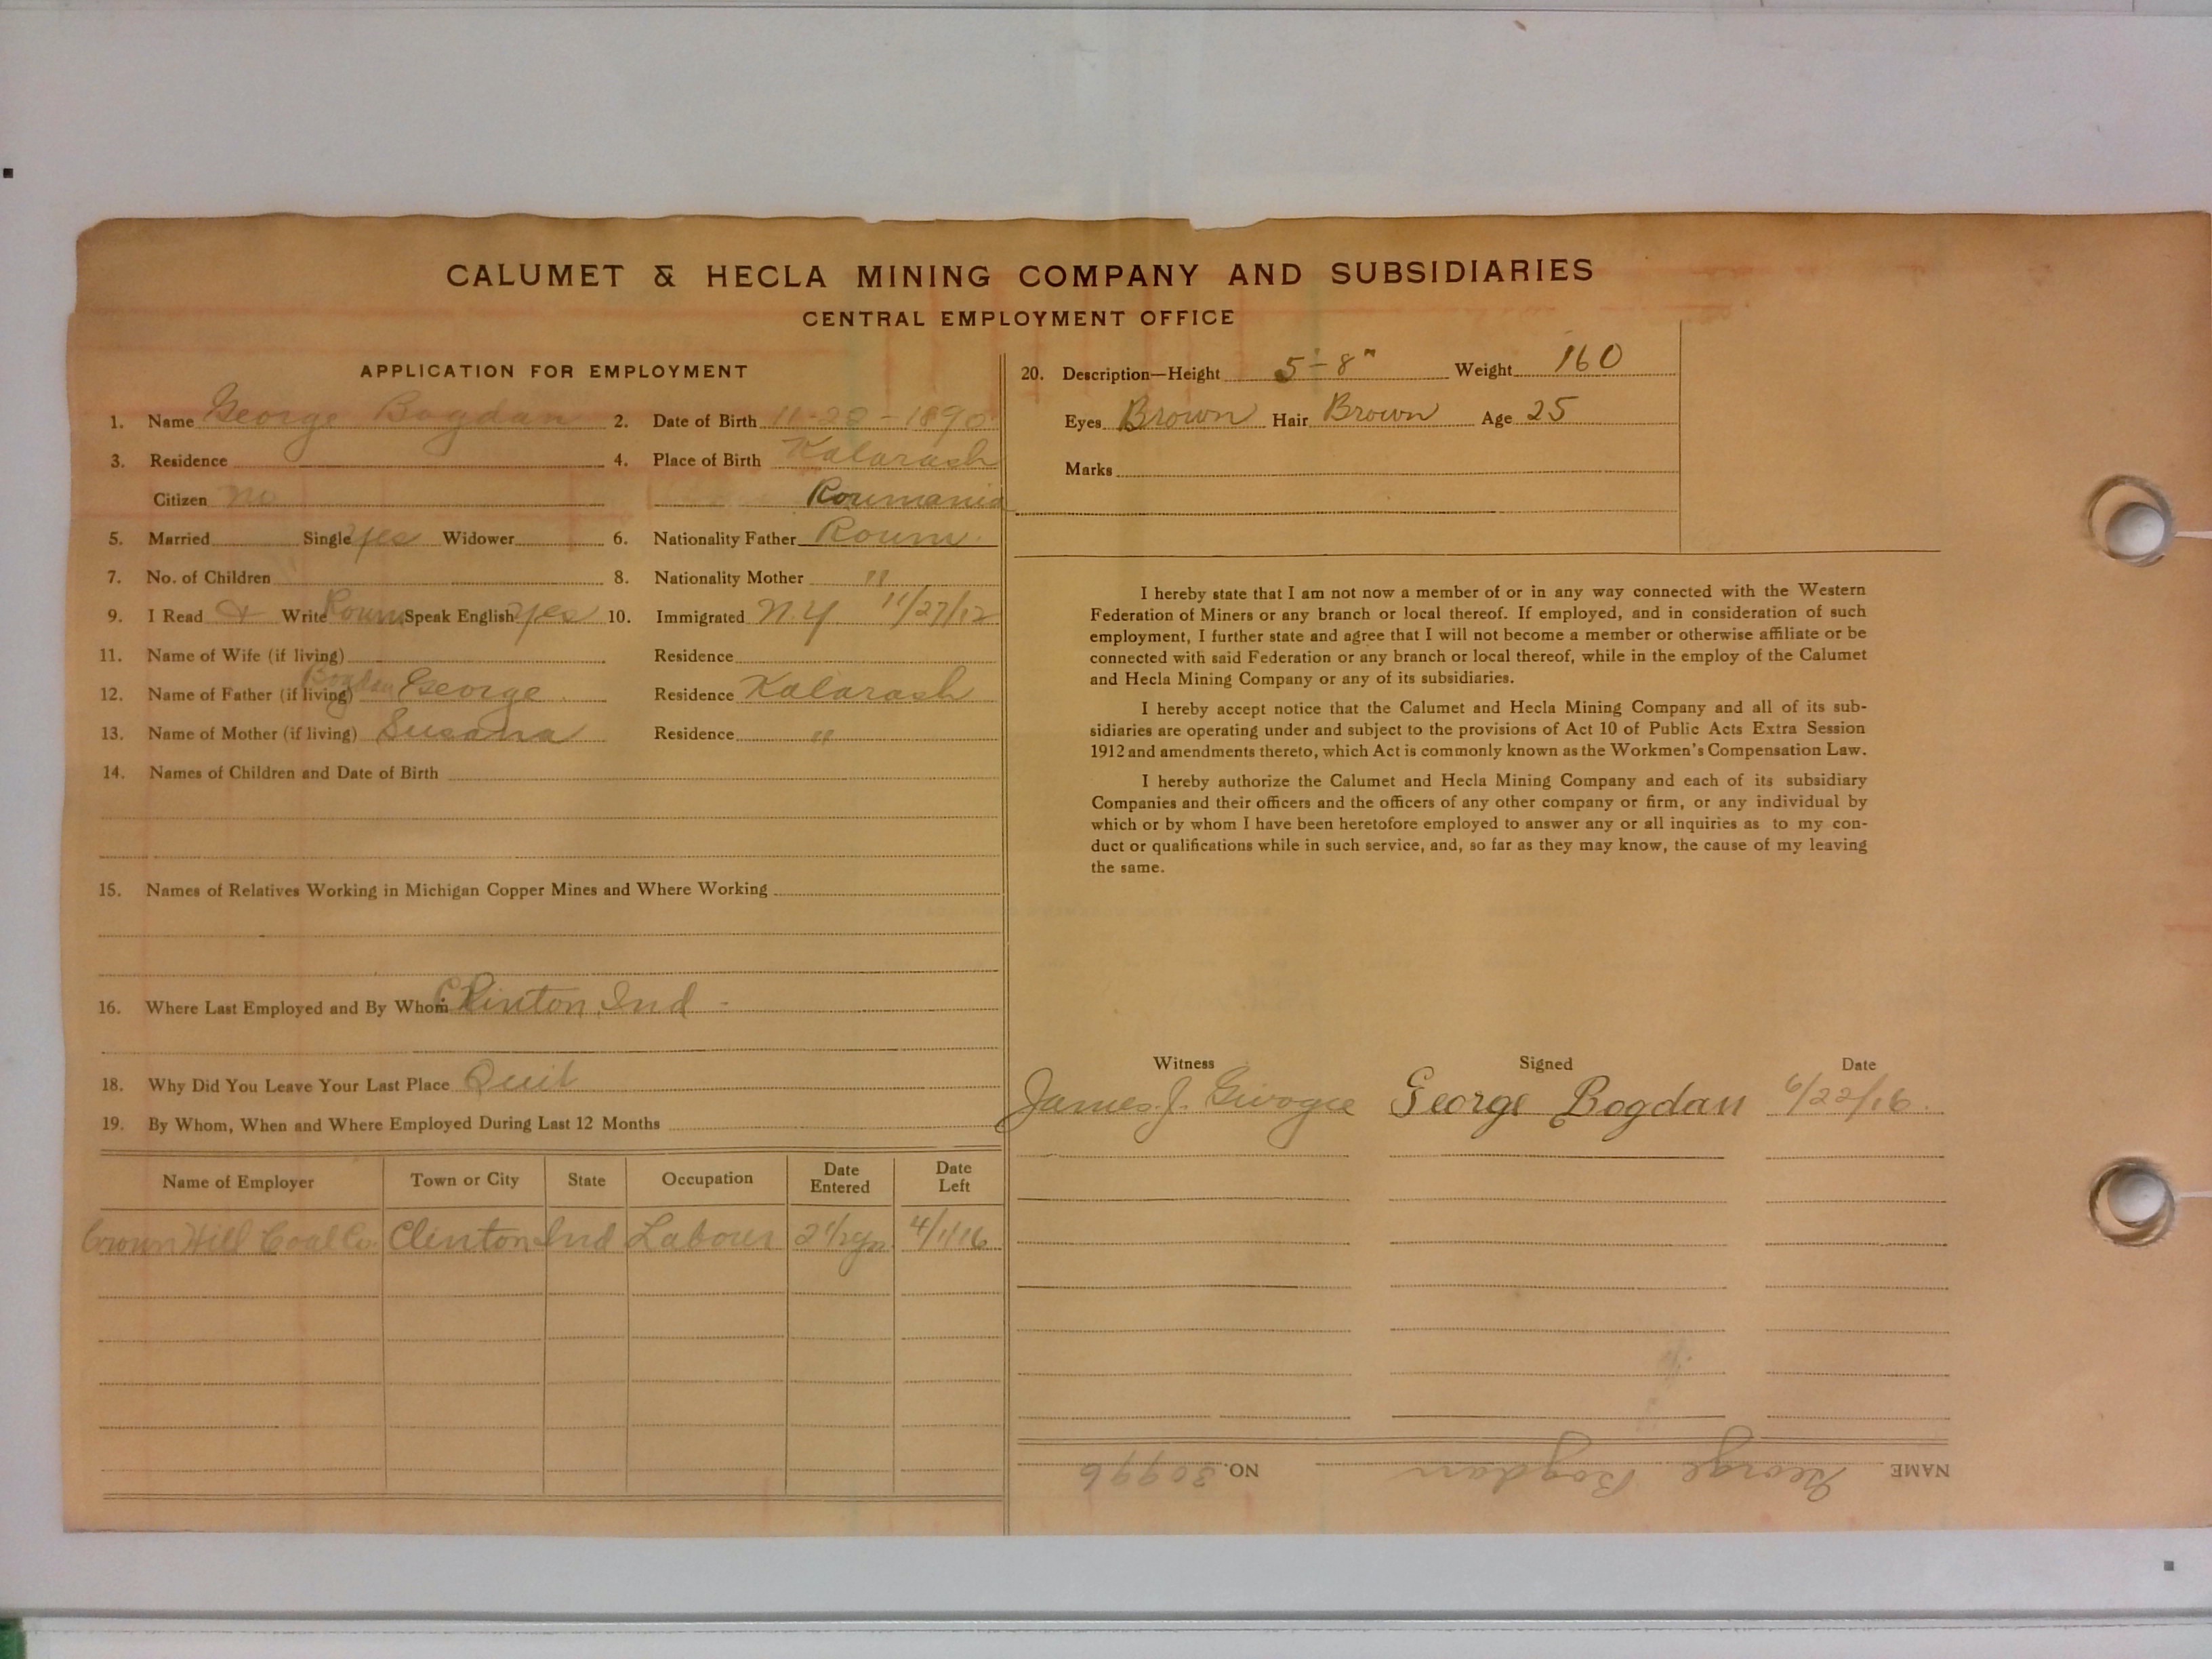 CALUMET & HECLA MINING COMPANY AND SUBSIDIARIES
CENTRAL EMPLOYMENT OFFICE
APPLICATION FOR EMPLOYMENT
1. Name George Bogdan 2. Date of Birth 11-20-1890
3. Residence 4. Place of Birth Kalarash
Citizen no Roumania
5. Married Single yes Widower 6. Nationality Father Roum.
7. No. of Children 8. Nationality Mother "
9. I Read & Write Roum Speak English yes 10. Immigrated N.Y. 11/27/12
11. Name of Wife (if living) Residence
12. Name of Father (if living) Bogdan George Residence Kalarash
13. Name of Mother (if living) Susana Residence "
14. Names of Children and Date of Birth
15. Names of Relatives Working in Michigan Copper Mines and Where Working
16. Where Last Employed and By Whom Clinton, Ind -
18. Why Did You Leave Your Last Place Quit
19. By Whom, When and Where Employed During Last 12 Months
Name of Employer Town or City State Occupation Date Entered Date Left
Crown Hill Coal Co. Clinton Ind Labour 2 1/2 yr. 4/1/16
20. Description—Height 5'-8" Weight 160
Eyes Brown Hair Brown Age 25
Marks
I hereby state that I am not now a member of or in any way connected with the Western
Federation of Miners or any branch or local thereof. If employed, and in consideration of such
employment, I further state and agree that I will not become a member or otherwise affiliate or be
connected with said Federation or any branch or local thereof, while in the employ of the Calumet
and Hecla Mining Company or any of its subsidiaries.
I hereby accept notice that the Calumet and Hecla Mining Company and all of its sub-
sidiaries are operating under and subject to the provisions of Act 10 of Public Acts Extra Session
1912 and amendments thereto, which Act is commonly known as the Workmen's Compensation Law.
I hereby authorize the Calumet and Hecla Mining Company and each of its subsidiary
Companies and their officers and the officers of any other company or firm, or any individual by
which or by whom I have been heretofore employed to answer any or all inquiries as to my con-
duct or qualifications while in such service, and, so far as they may know, the cause of my leaving
the same.
Witness Signed Date
James J. George Bogdan 6/22/16
NAME George Bogdan NO. 30996